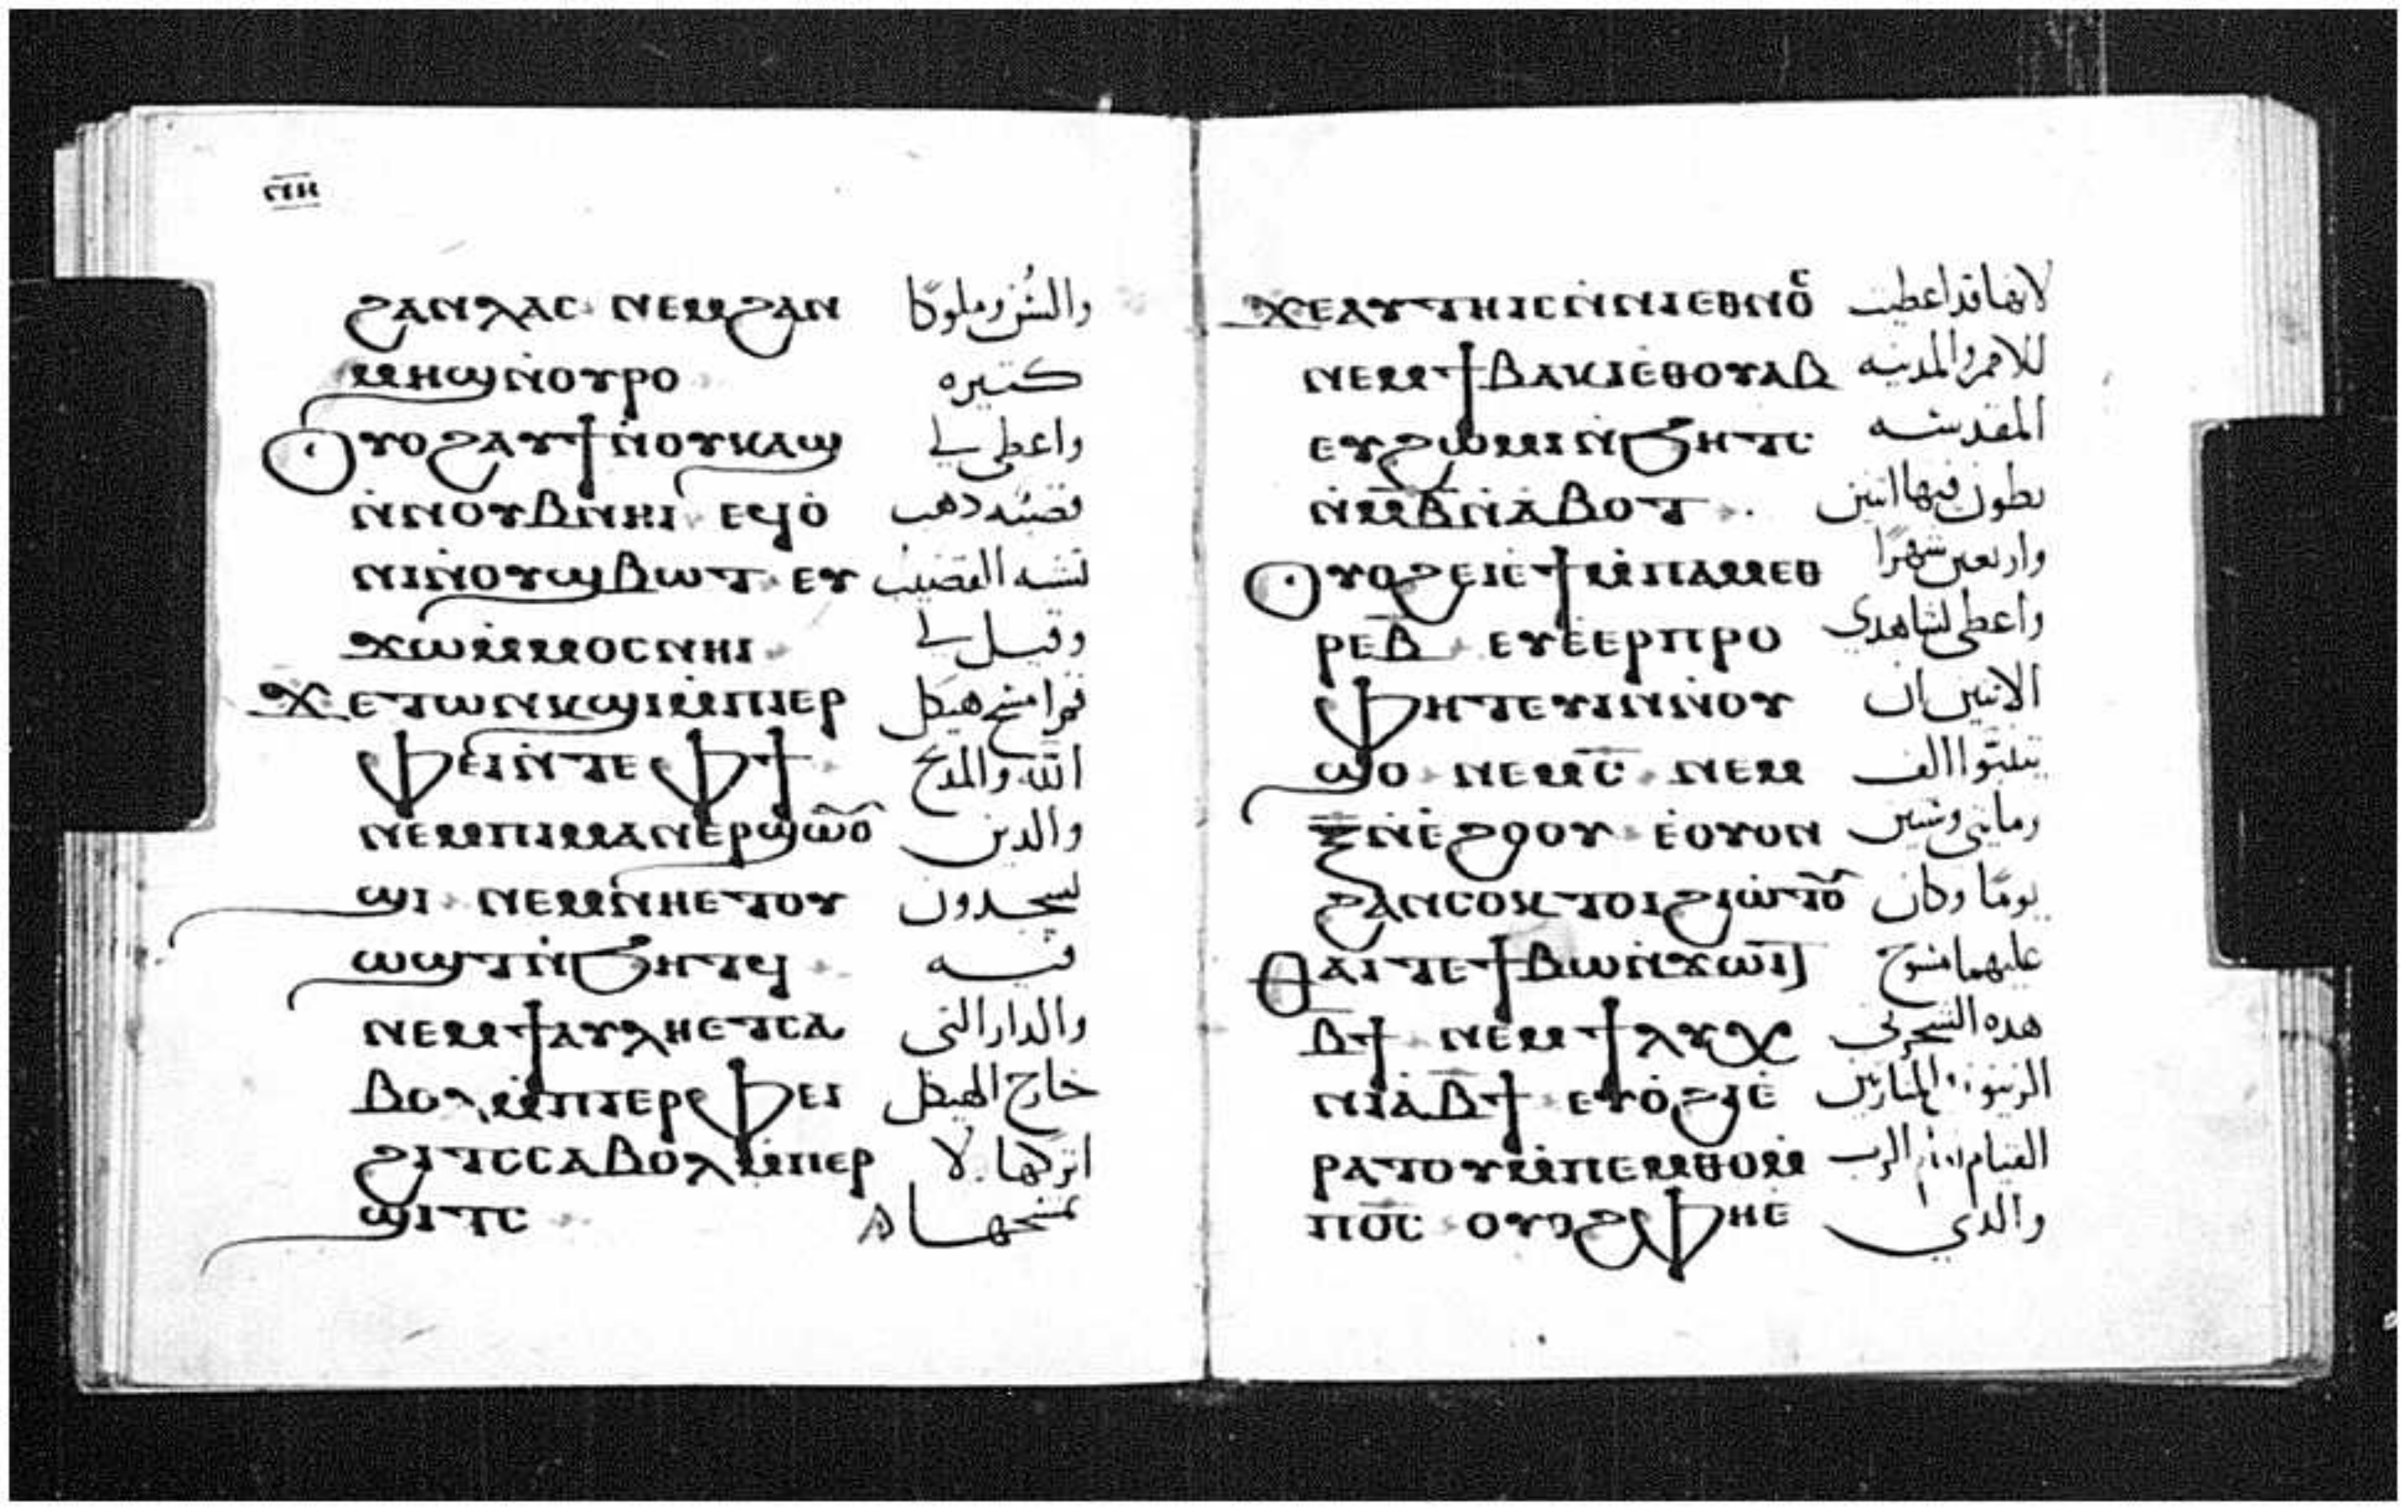 ⲛⲏ
ϩⲁⲛⲗⲁⲥ ⲛⲉⲙϩⲁⲛ والسُن وملوكًا
ⲙⲏϣⲛ̇ⲟⲩⲣⲟ كتيره
ⲟⲩⲟϩⲁⲩϯⲛ̇ⲟⲩⲕⲁϣ واعطي لي
ⲛ̇ⲛⲟⲩⲃⲛⲏⲓ ⲉϥⲟ̇ قصبه دهب
ⲛⲓⲛ̇ⲟⲩϣⲃⲱⲧ ⲉⲩ تشبه القضيب
ϫⲱⲙ̇ⲙⲟⲥⲛⲏⲓ وقيل لي
ϫⲉⲧⲱⲛⲕϣⲓⲙ̇ⲡⲓⲉⲣ قم امسح هيكل
ⲫⲉⲓⲛ̇ⲧⲉⲫϯ الله والمدبح
ⲛⲉⲙⲡⲓⲙⲁⲛⲉⲣϣⲱⲟ̅ والدين
ϣⲓ ⲛⲉⲙⲛ̇ⲏⲉⲧⲟⲩ يسجدون
ⲱϣⲧⲛ̇ϧⲏⲧϥ فيه
ⲛⲉⲙϯⲁⲩⲗⲏⲉⲧⲥⲁ والدار التي
ⲃⲟⲗⲙ̇ⲡⲓⲉⲣⲫⲉⲓ خارج الهيكل
ϩⲓⲧⲥⲥⲁⲃⲟⲗⲙ̇ⲡⲉⲣ اتركها لا
ϣⲓⲧⲥ تمسحها
ϫⲉⲁⲩⲧⲏⲓⲥⲛ̇ⲛⲓⲉⲑⲛⲟⲥ لانها قد اعطيت
ⲛⲉⲙϯⲃⲁⲕⲓⲉ̇ⲑⲟⲩⲁⲃ للامم والمدينه
ⲉⲩϩⲱⲙⲓⲛ̇ϧⲏⲧⲥ المقدسه
ⲛ̇ⲙ̅ⲃ̅ⲛ̇ⲁ̇ⲃⲟⲧ يطون فيها اتنين
ⲟⲩⲟϩⲉⲓⲉ̇ϯⲙ̇ⲡⲁⲙⲉⲑ واربعين شهرًا
ⲣⲉⲃ̅ ⲉⲩⲉ̇ⲉⲣⲡⲣⲟ واعطي لشاهدي
ⲫⲏⲧⲉⲩⲓⲛⲛ̇ⲟⲩ الاتنين ان
ϣⲟ ⲛⲉⲙⲥ̅ ⲛⲉⲙ يتنبوا الف
ⲝ̅ⲛ̇ⲉ̇ϩⲟⲟⲩ ⲉ̇ⲟⲩⲟⲛ ومايتي وستين
ϩⲁⲛⲥⲟⲕ ⲧⲟⲓϩⲓⲱ̇ⲧⲟ̅ يومًا وكان
ⲑⲁⲓⲧⲉϯⲃⲱⲛ̇ϫⲱⲓⲧ عليهما مسوح
ⲃ̅ϯ ⲛⲉⲙϯⲗⲩⲭ هده الشجرتي
ⲛⲓⲁ̇ⲃ̅ϯ ⲉⲧⲟ̇ϩⲓⲉ̇ الزيتون المنارتين
ⲣⲁⲧⲟⲩⲙ̇ⲡⲉⲙⲑⲟⲙ̇ القيام الرب
ⲡⲟ̅ⲥ̅ ⲟⲩⲟϩⲫⲏⲉ̇ والدي